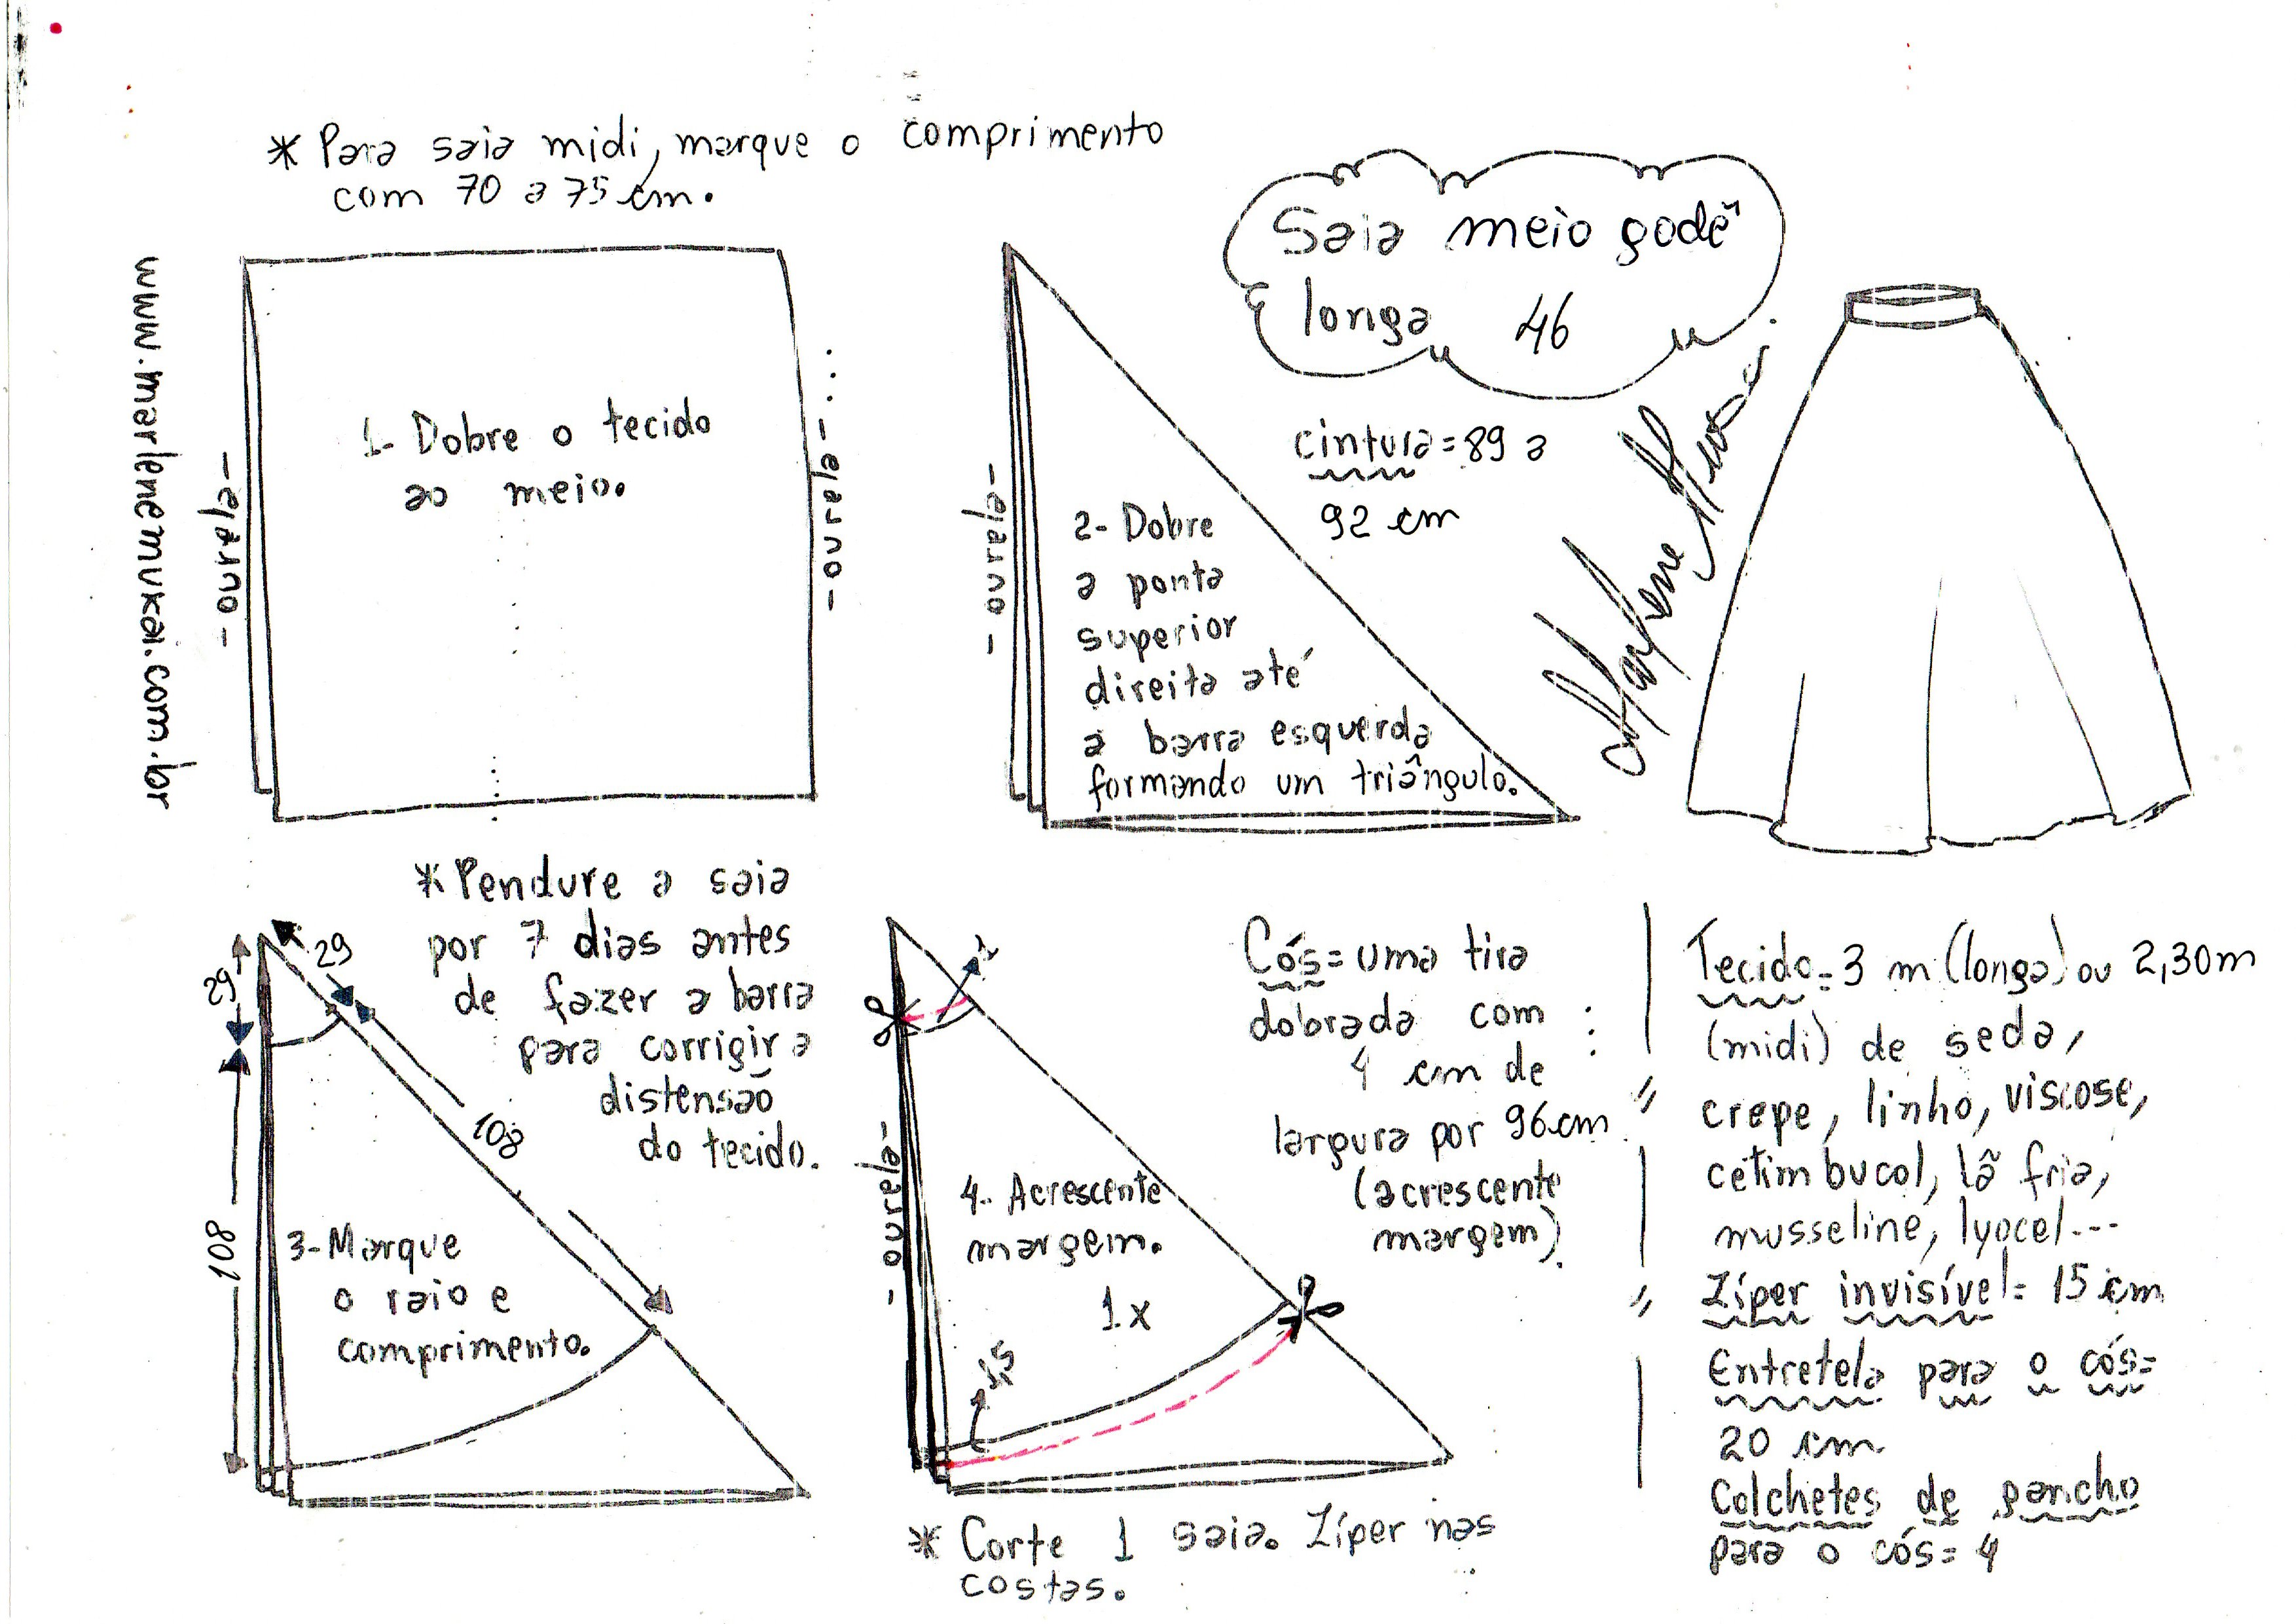 * Para saia midi, marque o comprimento
com 70 a 75 cm.
Saia meio godê
longa 46
www.marlenemukai.com.br
-ourela-
1- Dobre o tecido
ao meio.
-ourela-
-ourela-
2- Dobre
a ponta
superior
direita até
a barra esquerda
formando um triângulo.
cintura = 89 a
92 cm
Marlene Mukai
* Pendure a saia
por 7 dias antes
de fazer a barra
para corrigir a
distensão
do tecido.
29
29
108
108
3- Marque
o raio e
comprimento.
1
-ourela-
4- Acrescente
margem.
1x
1,5
* Corte 1 saia. Zíper nas
costas.
Cós = uma tira
dobrada com
4 cm de
largura por 96 cm
(acrescente
margem).
Tecido = 3 m (longa) ou 2,30m
(midi) de seda,
crepe, linho, viscose,
cetim bucol, lã fria,
musseline, lyocel...
Zíper invisível = 15 cm
Entretela para o cós =
20 cm
Colchetes de gancho
para o cós = 4